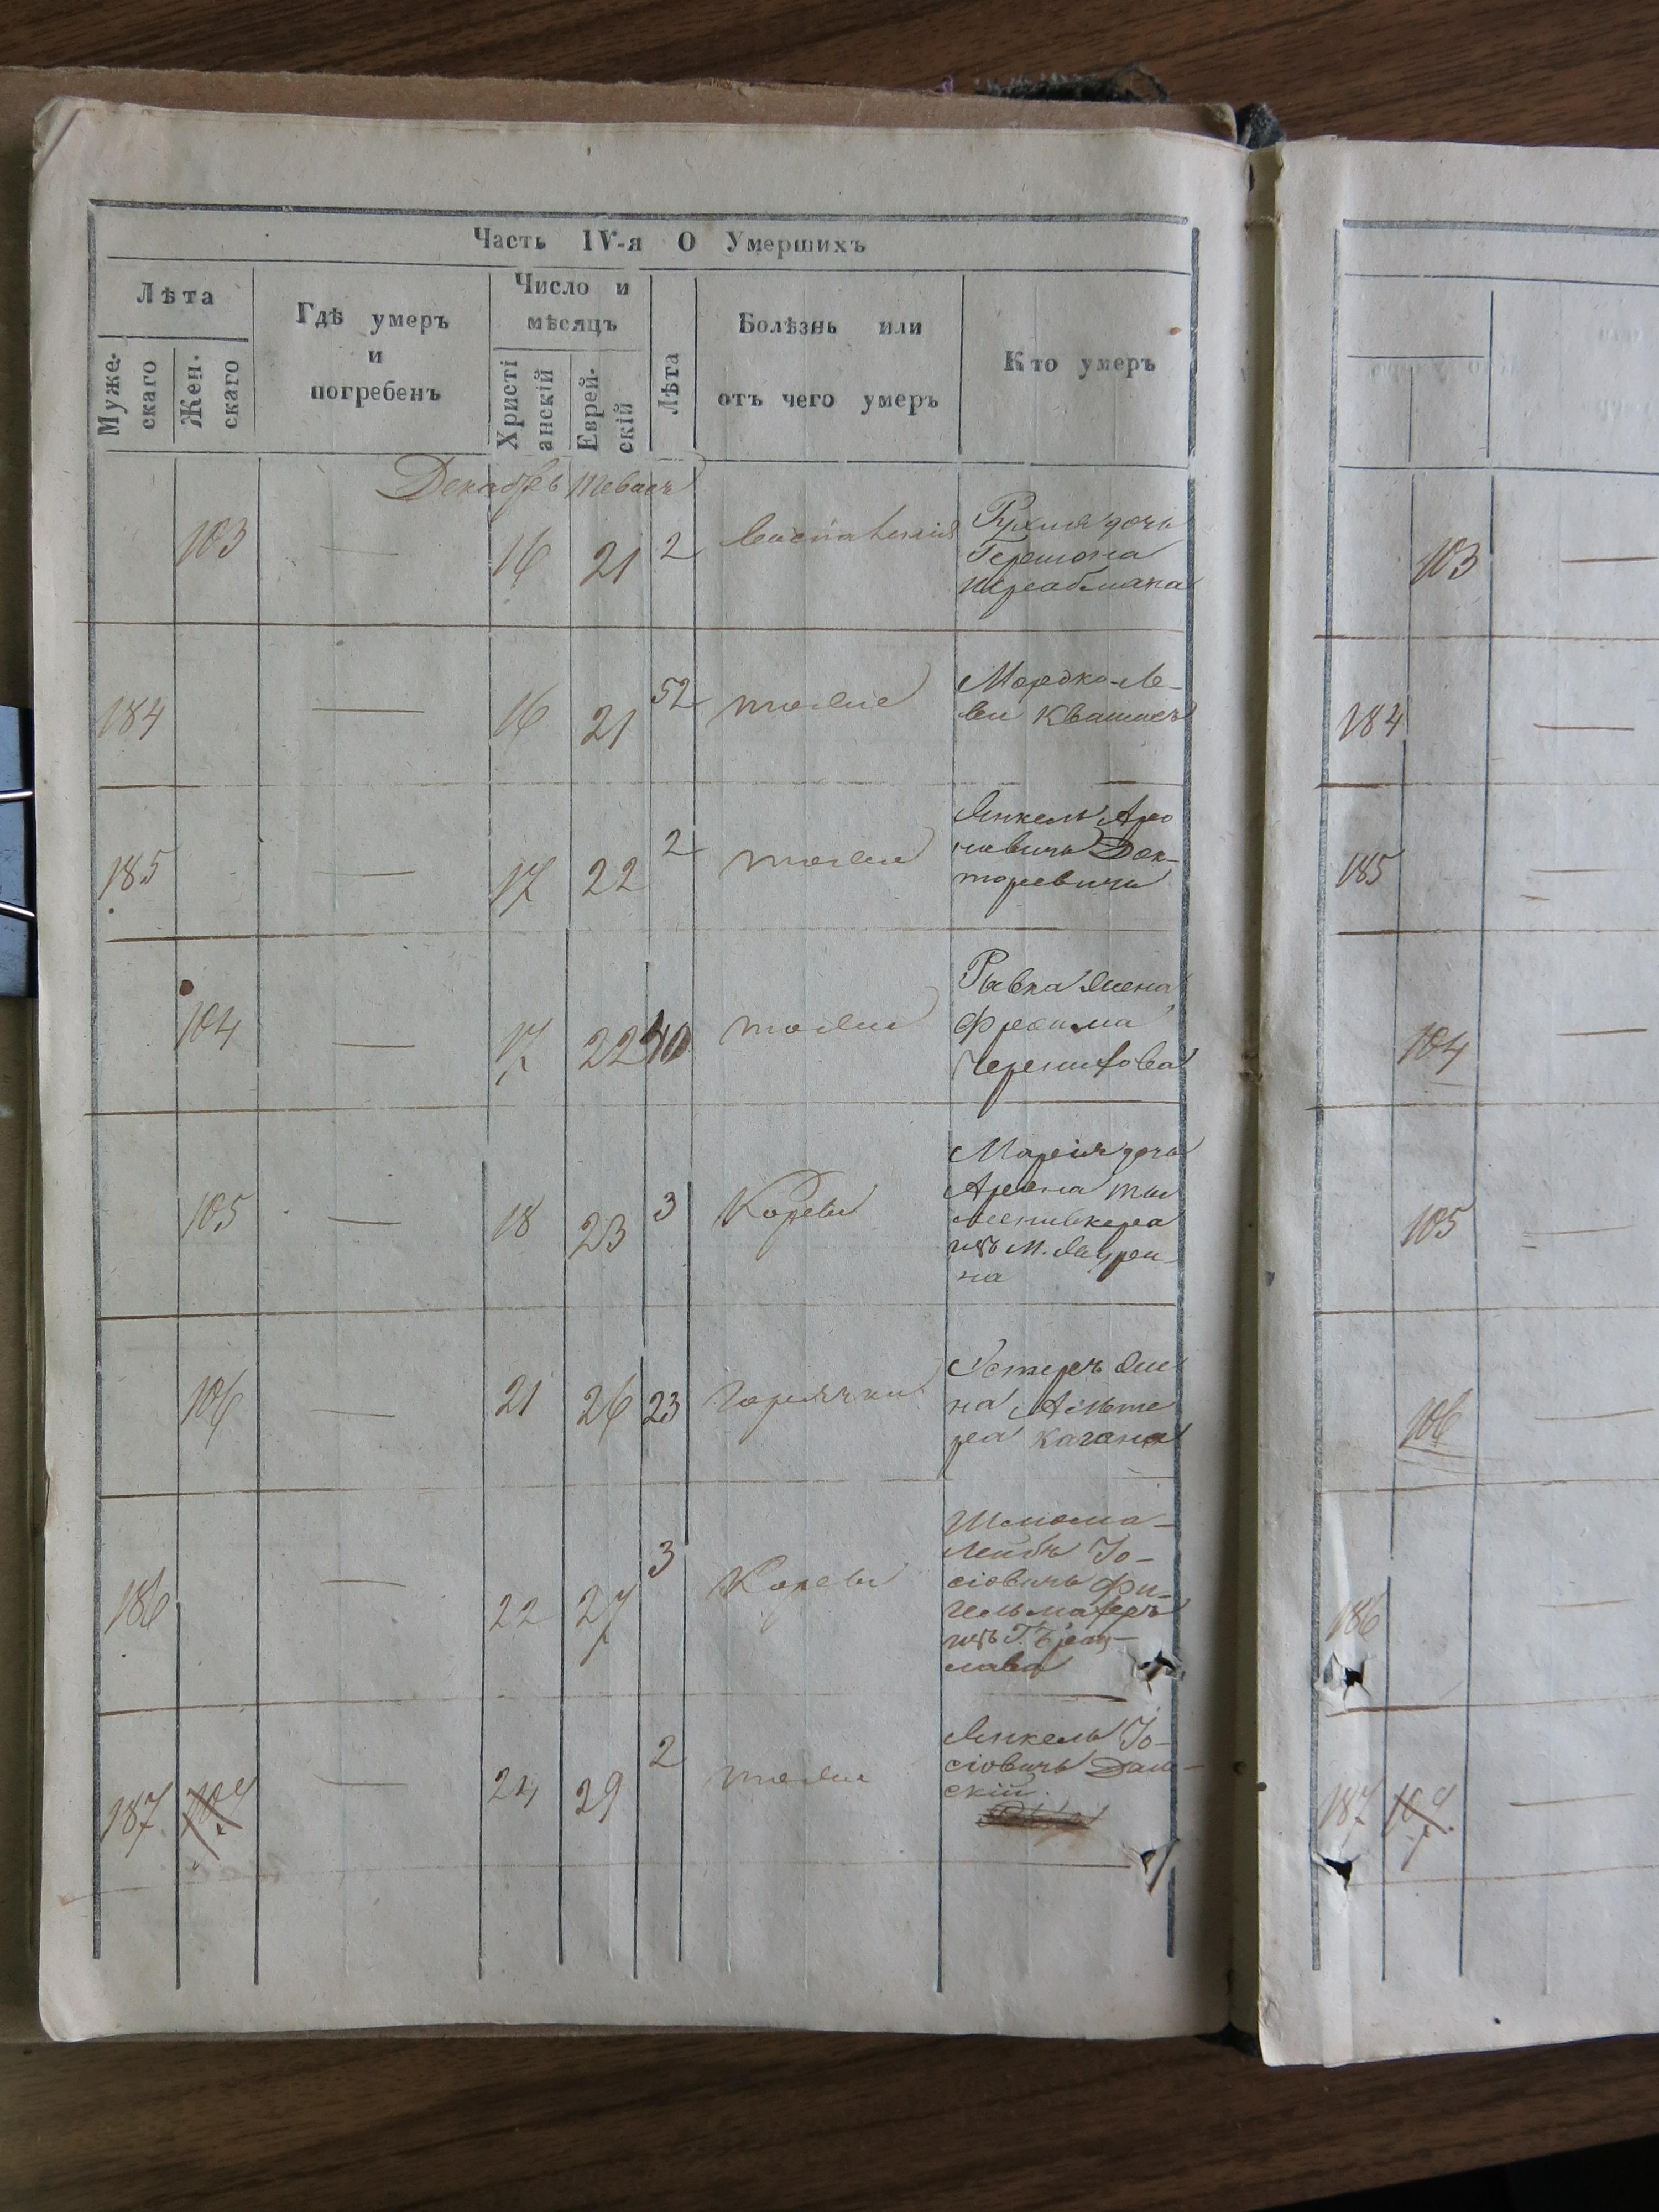 Часть IV-я О Умершихъ
Лѣта
Муже-
скаго
Жен.
скаго
Гдѣ умеръ
и
погребенъ
Число и
мѣсяцъ
Христі
анскій
Еврей-
скій
Лѣта
Болѣзнь или
отъ чего умеръ
Кто умеръ
Декабрь Тевесъ
103 — 16 21 2 Воспаленія
Рухля дочь
Гершона
184 — 16 21 52 тоже
Мордко Ле-
ви Квашисъ
185 — 17 22 2 тоже
Янкель Аро
новичъ Док-
торевичъ
104 — 17 22 40 тоже
Рывка жена
Фроима
105 — 18 23 3 Коревы
Марія дочь
Арона
изъ М.
на
106 — 21 26 23 горячки
Эстеръ же
на Альте
ра Кагана
186 — 22 27 3 Коревы
Шлома-
Лейбъ Іо-
сіовичъ Фи-
изъ Г. Брац-
лава
187 104 — 24 29 2 тоже
Янкель Іо-
сіовичъ Даш-
скій.
103 —
184 —
185 —
104 —
105 —
106 —
186 —
187 104 —